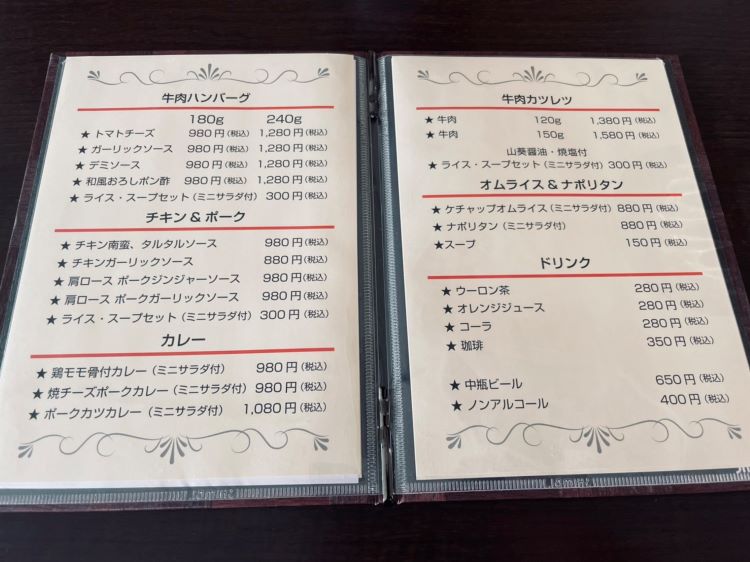 牛肉ハンバーグ
180g 240g
★ トマトチーズ 980円(税込) 1,280円(税込)
★ ガーリックソース 980円(税込) 1,280円(税込)
★ デミソース 980円(税込) 1,280円(税込)
★ 和風おろしポン酢 980円(税込) 1,280円(税込)
★ ライス・スープセット(ミニサラダ付) 300円(税込)
チキン & ポーク
★ チキン南蛮、タルタルソース 980円(税込)
★ チキンガーリックソース 880円(税込)
★ 肩ロース ポークジンジャーソース 980円(税込)
★ 肩ロース ポークガーリックソース 980円(税込)
★ ライス・スープセット(ミニサラダ付) 300円(税込)
カレー
★ 鶏モモ骨付カレー(ミニサラダ付) 980円(税込)
★ 焼チーズポークカレー(ミニサラダ付) 980円(税込)
★ ポークカツカレー(ミニサラダ付) 1,080円(税込)
牛肉カツレツ
★ 牛肉 120g 1,380円(税込)
★ 牛肉 150g 1,580円(税込)
山葵醤油・焼塩付
★ ライス・スープセット(ミニサラダ付) 300円(税込)
オムライス & ナポリタン
★ ケチャップオムライス(ミニサラダ付) 880円(税込)
★ ナポリタン(ミニサラダ付) 880円(税込)
★スープ 150円(税込)
ドリンク
★ ウーロン茶 280円(税込)
★ オレンジジュース 280円(税込)
★ コーラ 280円(税込)
★ 珈琲 350円(税込)
★ 中瓶ビール 650円(税込)
★ ノンアルコール 400円(税込)